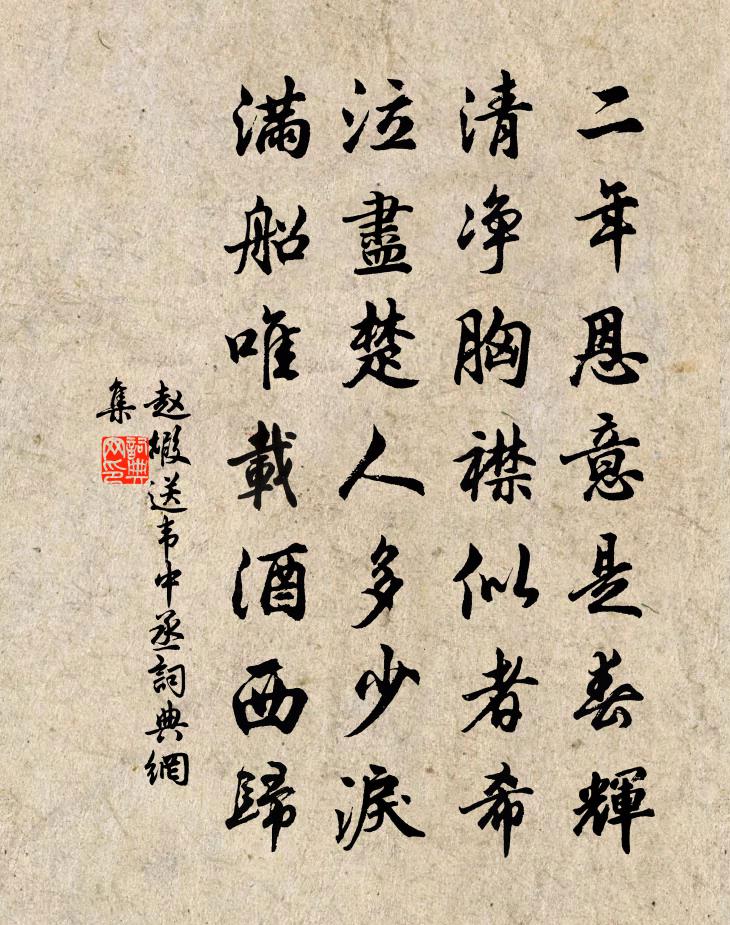 二年恩意是春輝
清净胸襟似者希
泣盡楚人多少淚
滿船唯載酒西歸
赵嘏送韦中丞詞典網
集
詞典
网印